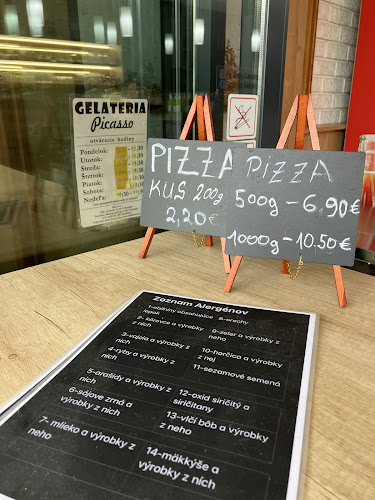 GELATERIA
Picasso
otváracie hodiny
Pondelok:
Utorok:
Streda:
Štvrtok:
Piatok:
Sobota:
Nedeľa:
PIZZA
KUS 200g
2,20€
PIZZA
500g - 6.90€
1000g - 10.50€
Zoznam Alergénov
1-obilniny obsahujúce
lepok
2- kôrovce a výrobky
z nich
3-vajcia a výrobky
z nich
4-ryby a výrobky z
nich
5-arašidy a výrobky z
nich
6-sójove zrná a
výrobky z nich
7- mlieko a výrobky z
neho
8-orechy
9-zeler a výrobky z
neho
10-horčica a výrobky z
nej
11-sezamové semená
12-oxid siričitý a
siričitany
13-vlčí bôb a výrobky
z neho
14-mäkkýše a
výrobky z nich